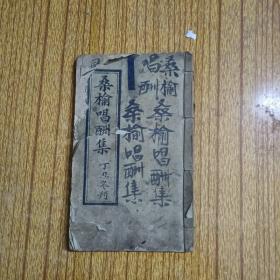 桑榆
唱酬
桑榆唱酬集
桑榆唱酬集
桑榆唱酬集
丁巳冬刊